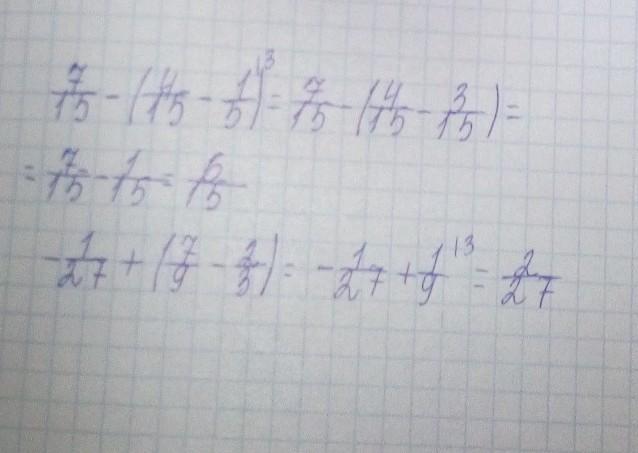 7/15 - (4/15 - 1/5)^{13} = 7/15 - (4/15 - 3/15) =
= 7/15 - 1/15 = 6/15
- 1/27 + (7/9 - 2/3) = - 1/27 + 1/9^{13} = 2/27